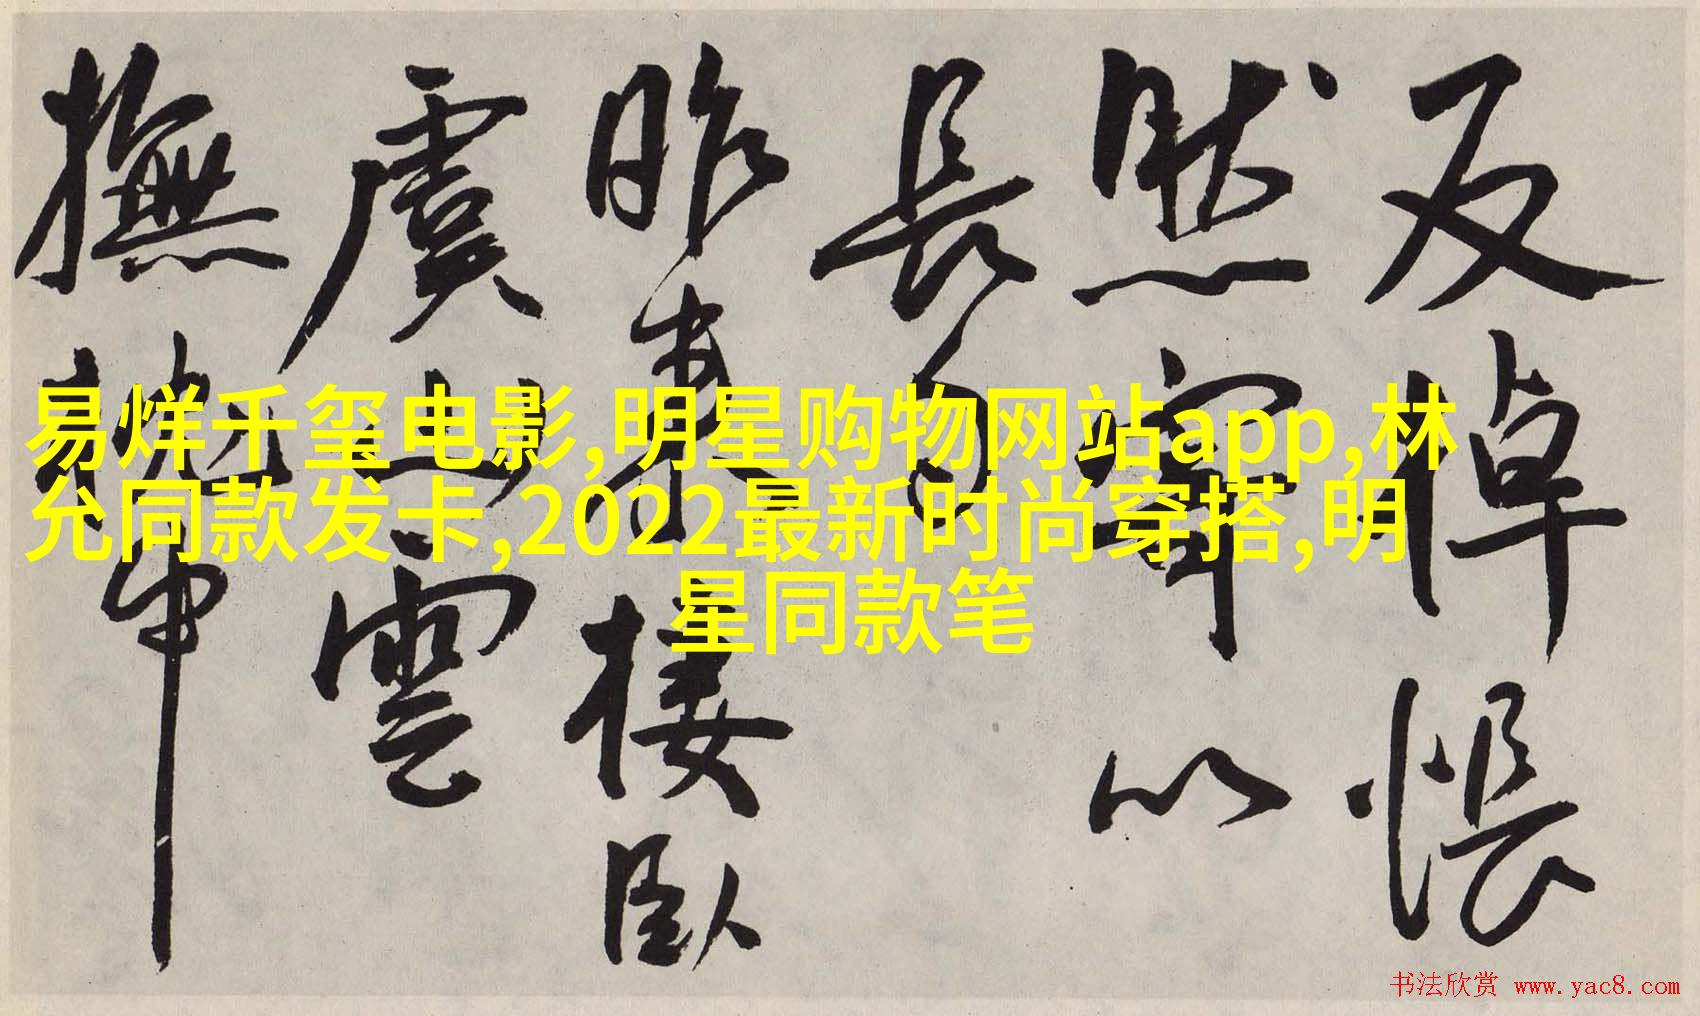 易烊千玺电影,明星购物网站app,林
允同款发卡,2022最新时尚穿搭,明
星同款笔
反悵
然以
長句
昨來樓臥
虞山雲
撫
书法欣赏 www.yac8.com